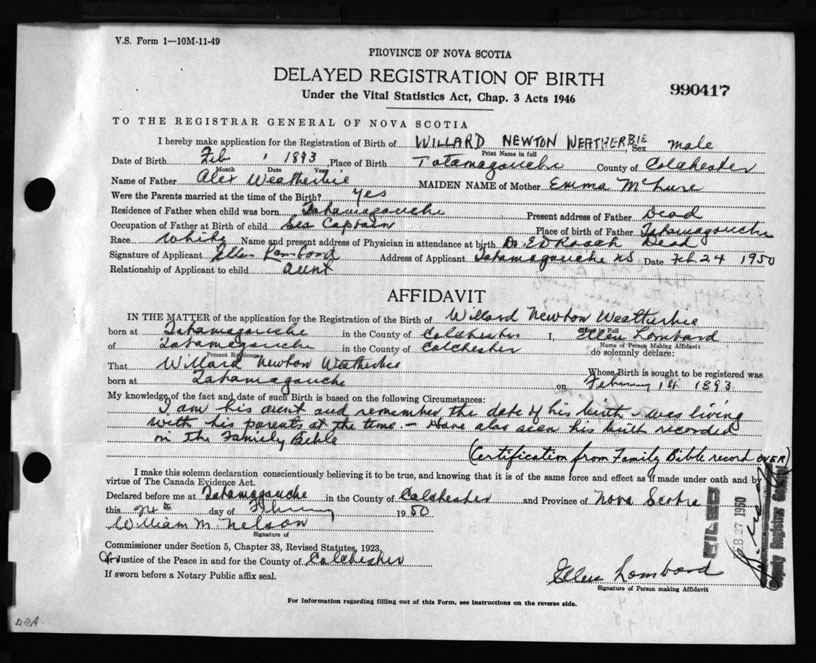 V.S. Form 1—10M-11-49
PROVINCE OF NOVA SCOTIA
DELAYED REGISTRATION OF BIRTH
990417
Under the Vital Statistics Act, Chap. 3 Acts 1946
TO THE REGISTRAR GENERAL OF NOVA SCOTIA
I hereby make application for the Registration of Birth of WILLARD NEWTON WEATHERBIE Sex male
Print Name in full
Date of Birth Feb 1 1893 Place of Birth Tatamagouche County of Colchester
Month Date Year
Name of Father Alex Weatherbie MAIDEN NAME of Mother Emma McLure
Were the Parents married at the time of the Birth? Yes
Residence of Father when child was born Tatamagouche Present address of Father Dead
Occupation of Father at Birth of child Sea Captain Place of birth of Father Tatamagouche
Race White Name and present address of Physician in attendance at birth Dr. E D Roach Dead
Signature of Applicant Ellen Lombard Address of Applicant Tatamagouche NS Date Feb 24 1950
Relationship of Applicant to child aunt
AFFIDAVIT
IN THE MATTER of the application for the Registration of the Birth of Willard Newton Weatherbie
born at Tatamagouche in the County of Colchester I, Ellen Lombard
Name of Person Making Affidavit
of Tatamagouche in the County of Colchester do solemnly declare:
Present Residence
That Willard Newton Weatherbie Whose Birth is sought to be registered was
born at Tatamagouche on February 1st 1893
My knowledge of the fact and date of such Birth is based on the following Circumstances:
I am his aunt and remember the date of his birth - was living
with his parents at the time. - Have also seen his birth recorded
in the Family Bible
(Certification from Family Bible record OVER)
I make this solemn declaration conscientiously believing it to be true, and knowing that it is of the same force and effect as if made under oath and by
virtue of The Canada Evidence Act.
Declared before me at Tatamagouche in the County of Colchester and Province of Nova Scotia
this 24th day of February 1950
William M. Nelson
Signature of
Commissioner under Section 5, Chapter 38, Revised Statutes, 1923,
Or Justice of the Peace in and for the County of Colchester
If sworn before a Notary Public affix seal.
Ellen Lombard
Signature of Person making Affidavit
FILED
FEB 27 1950
Deputy Registrar General
For Information regarding filling out of this Form, see instructions on the reverse side.